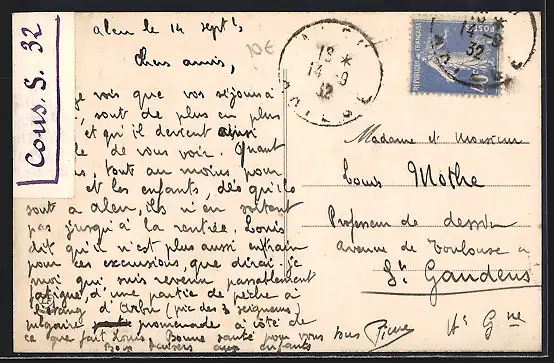 Cous. S. 32
alen le 14 septbs
10€
Chers amis,
je vois que vos séjours à
sont de plus en plus
et qu'il devient ainsi
de vous voir. Quant
tout au moins, pour
et les enfants, dès qu'ils
sont à alen, ils n'en sortent
pas jusqu'à la rentrée. Louis
dit qu'il n'est plus aussi
pour ces excursions, que dirai-je
moi qui suis revenu passablement
fatigué d'une partie de pêche à
l'étang d'Arbu (pic des 3 seigneurs)
promenade à côté de
ce que fait Louis. Bonne santé pour vous
Bons baisers aux enfants
13 *
14 - 9
32
REPUBLIQUE FRANÇAISE
14 - 9
32
Madame et Monsieur
Louis Mothe
Professeur de dessin
avenue de Toulouse
St Gaudens
Hte Gne